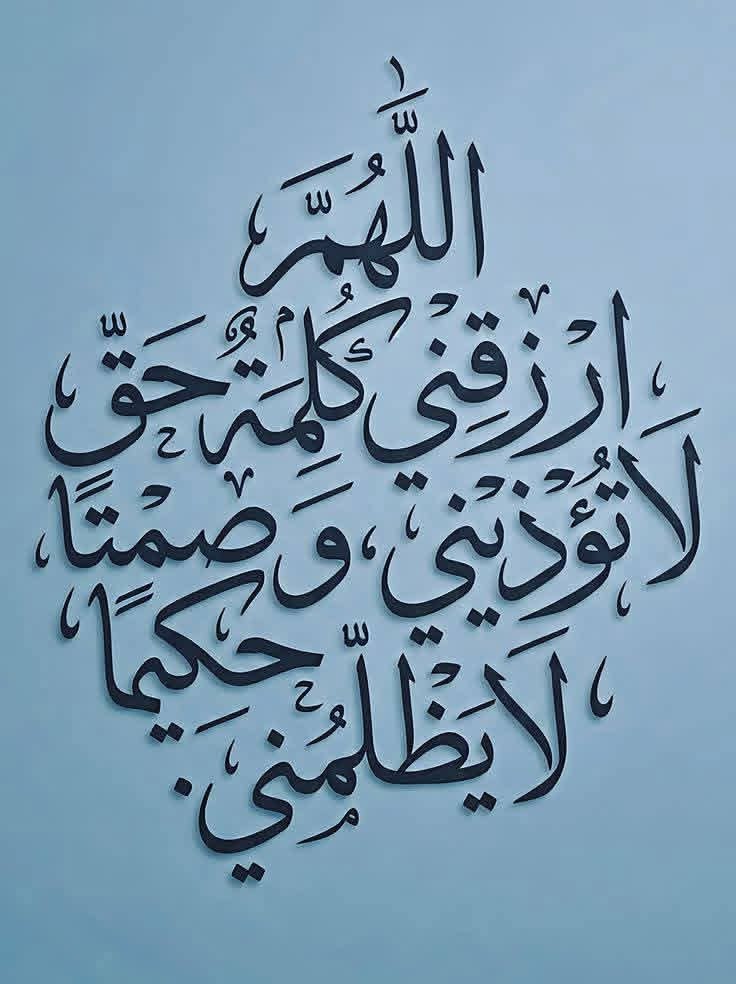 اللَّهُمَّ
ارْزُقِنِي كُلِمَةُ حَقّ
لَا تُؤْذِيْنِي، وَصَمْتًا
حَكِيمًا
لَا يَظْلُمُنِي.